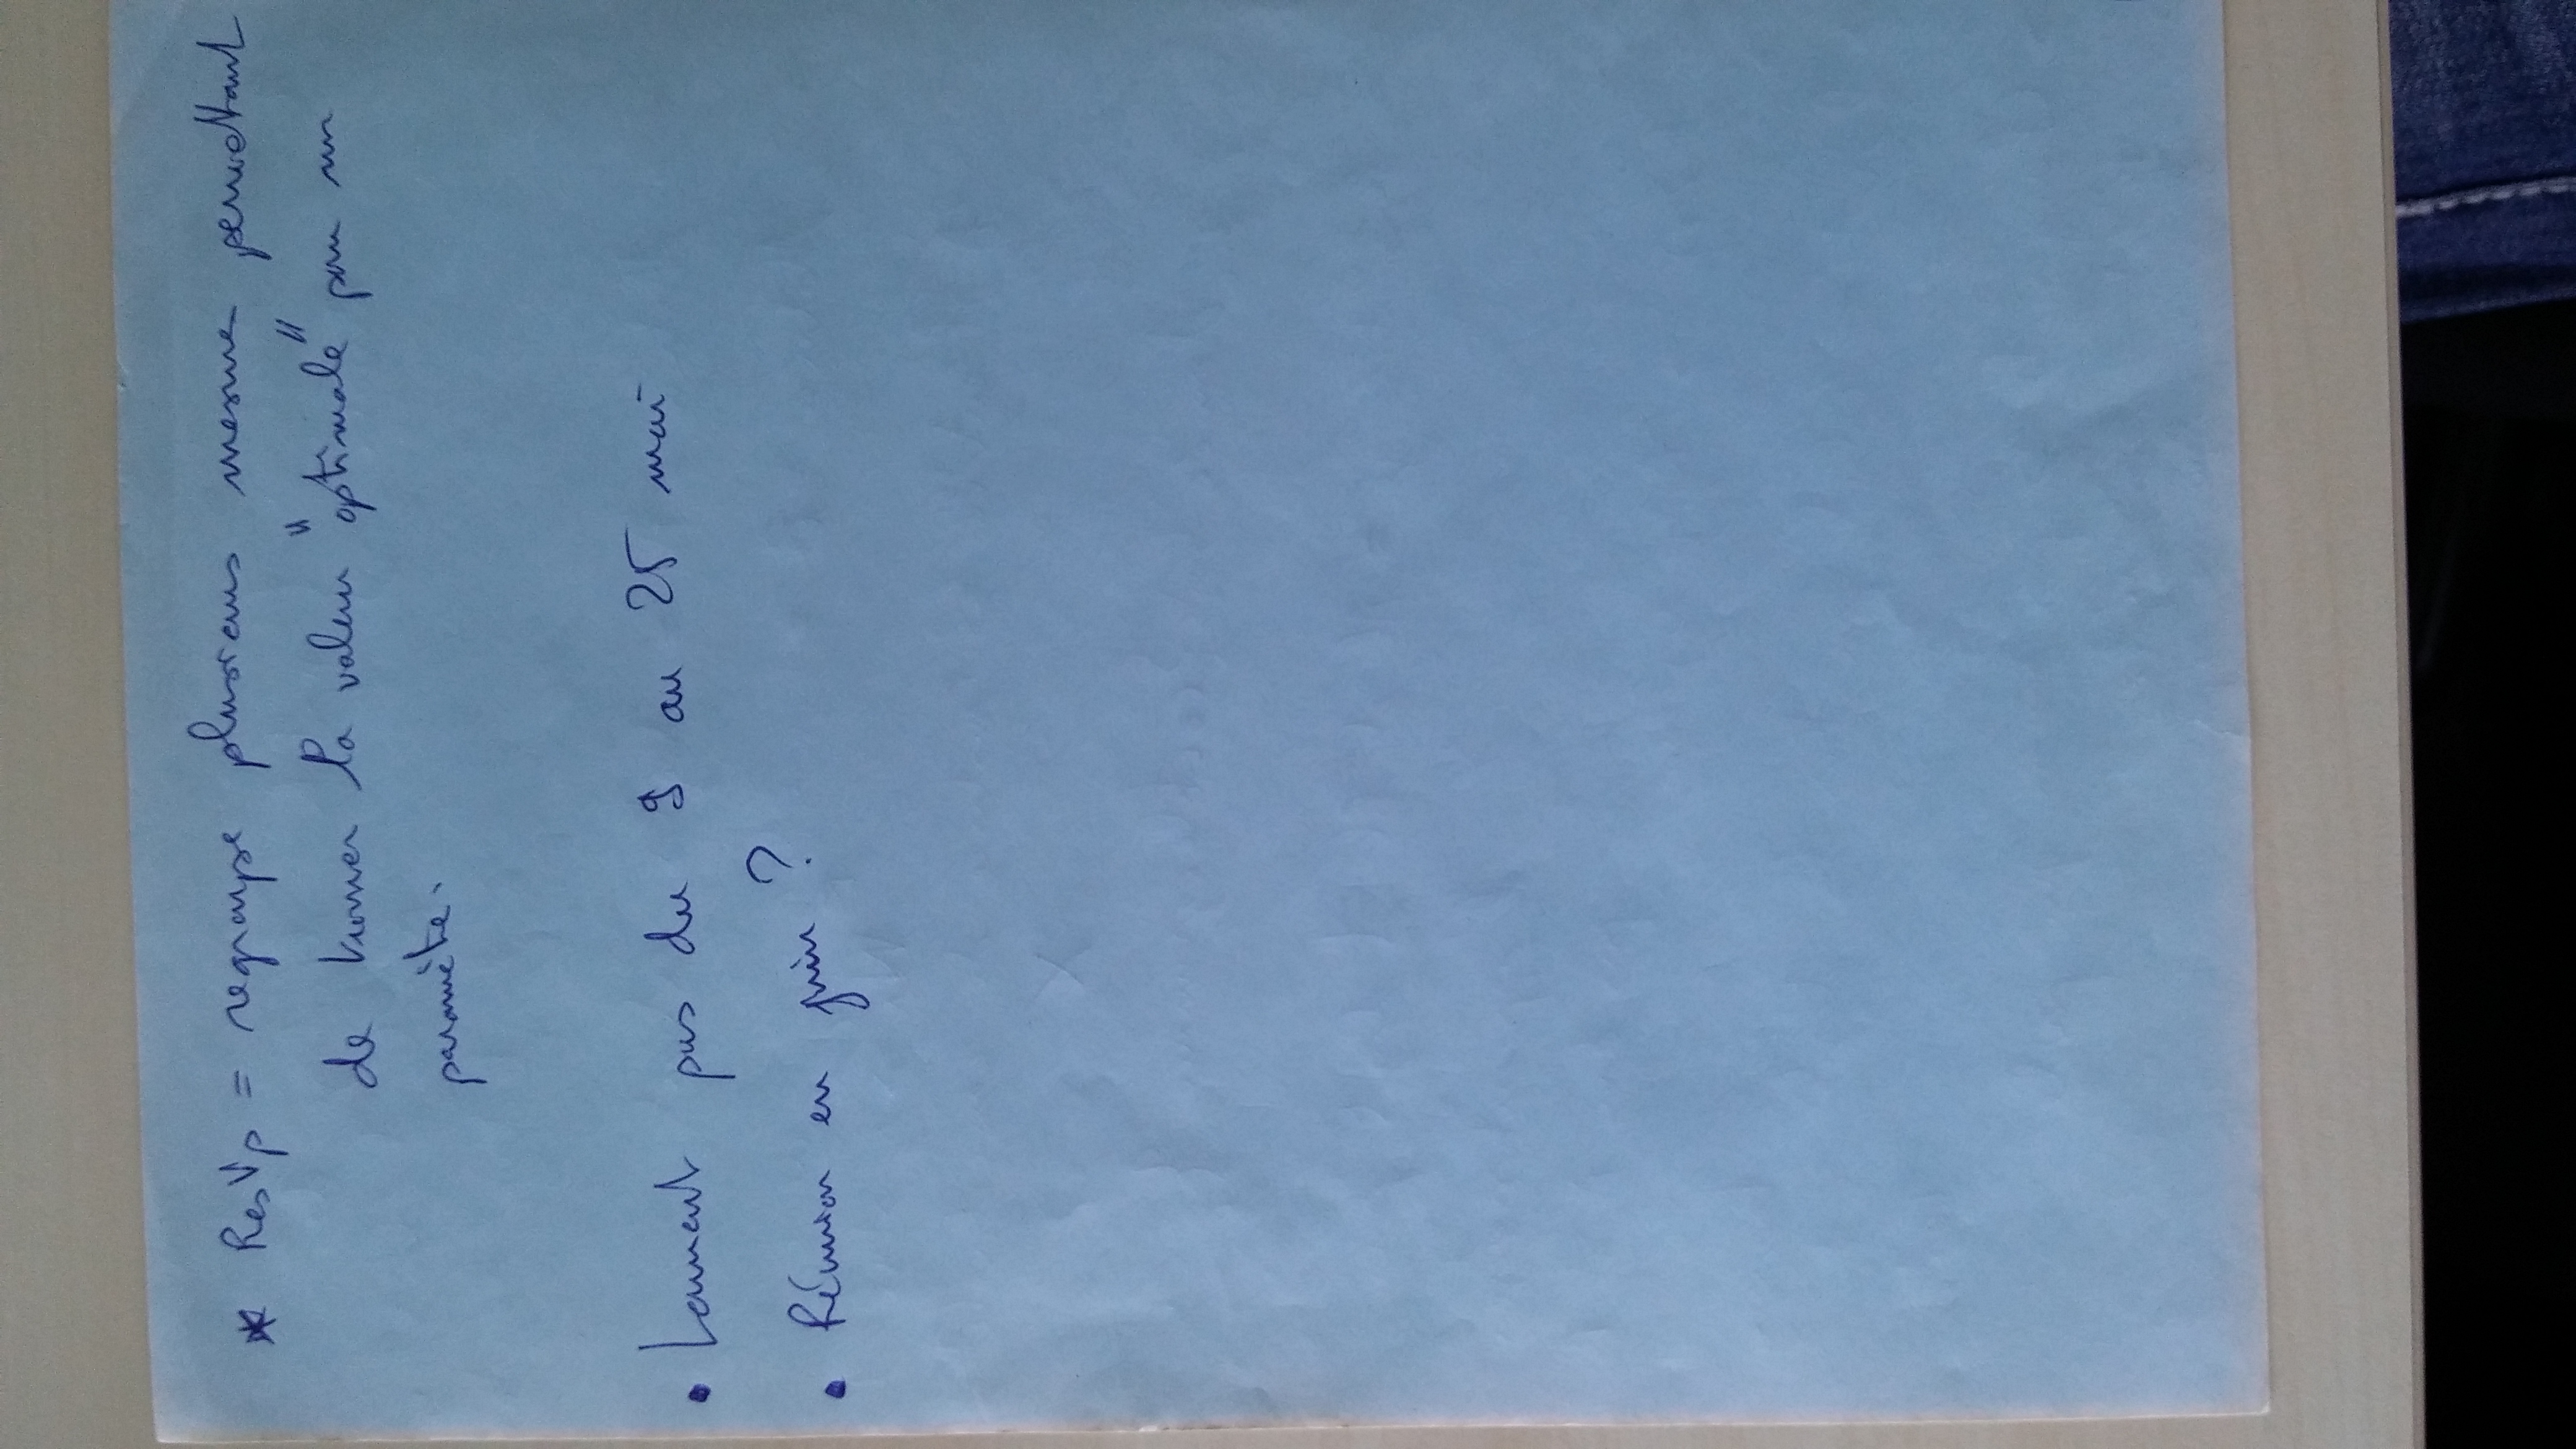 * ResVp = regroupe plusieurs mesures permettant
de trouver la valeur "optimale" pour un
paramètre.
• Laurent pas du 9 au 25 mai
• Réunion en juin ?